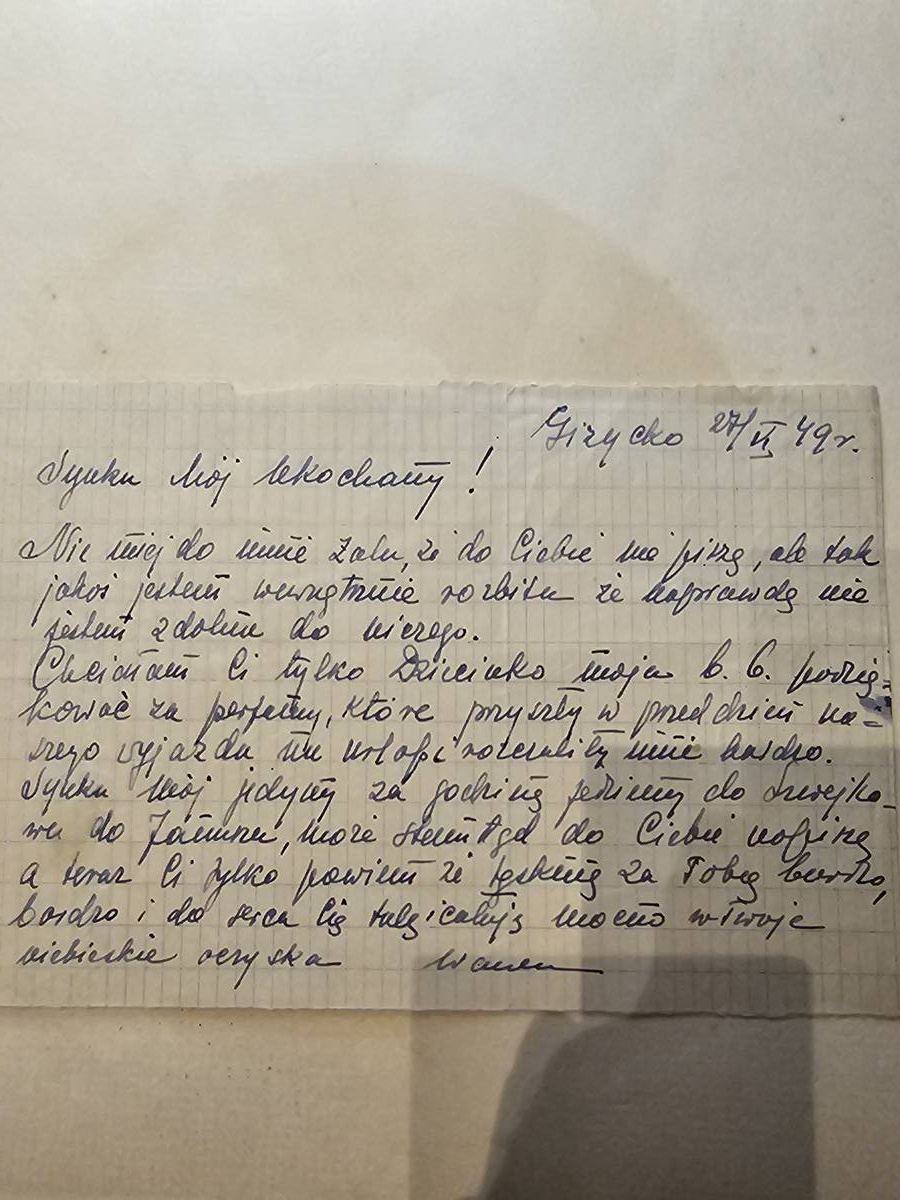 Giżycko 27/VI 49 r.
Synku Mój Ukochany!
Nie miej do mnie żalu, że do Ciebie nie piszę, ale tak
jakoś jestem wewnętrznie rozbita że naprawdę nie
jestem zdolna do niczego.
Chciałam Ci tylko Dziecinko moja b. b. podzię-
kować za perfumy, które przyszły w przeddzień na-
szego wyjazdu na urlop i rozczuliły mnie bardzo.
Synku Mój jedyny za godzinę jedziemy do
do może stamtąd do Ciebie napiszę
a teraz Ci tylko powiem że tęsknię za Tobą bardzo,
bardzo i do serca Cię tulę i całuję mocno w Twoje
niebieskie oczyska